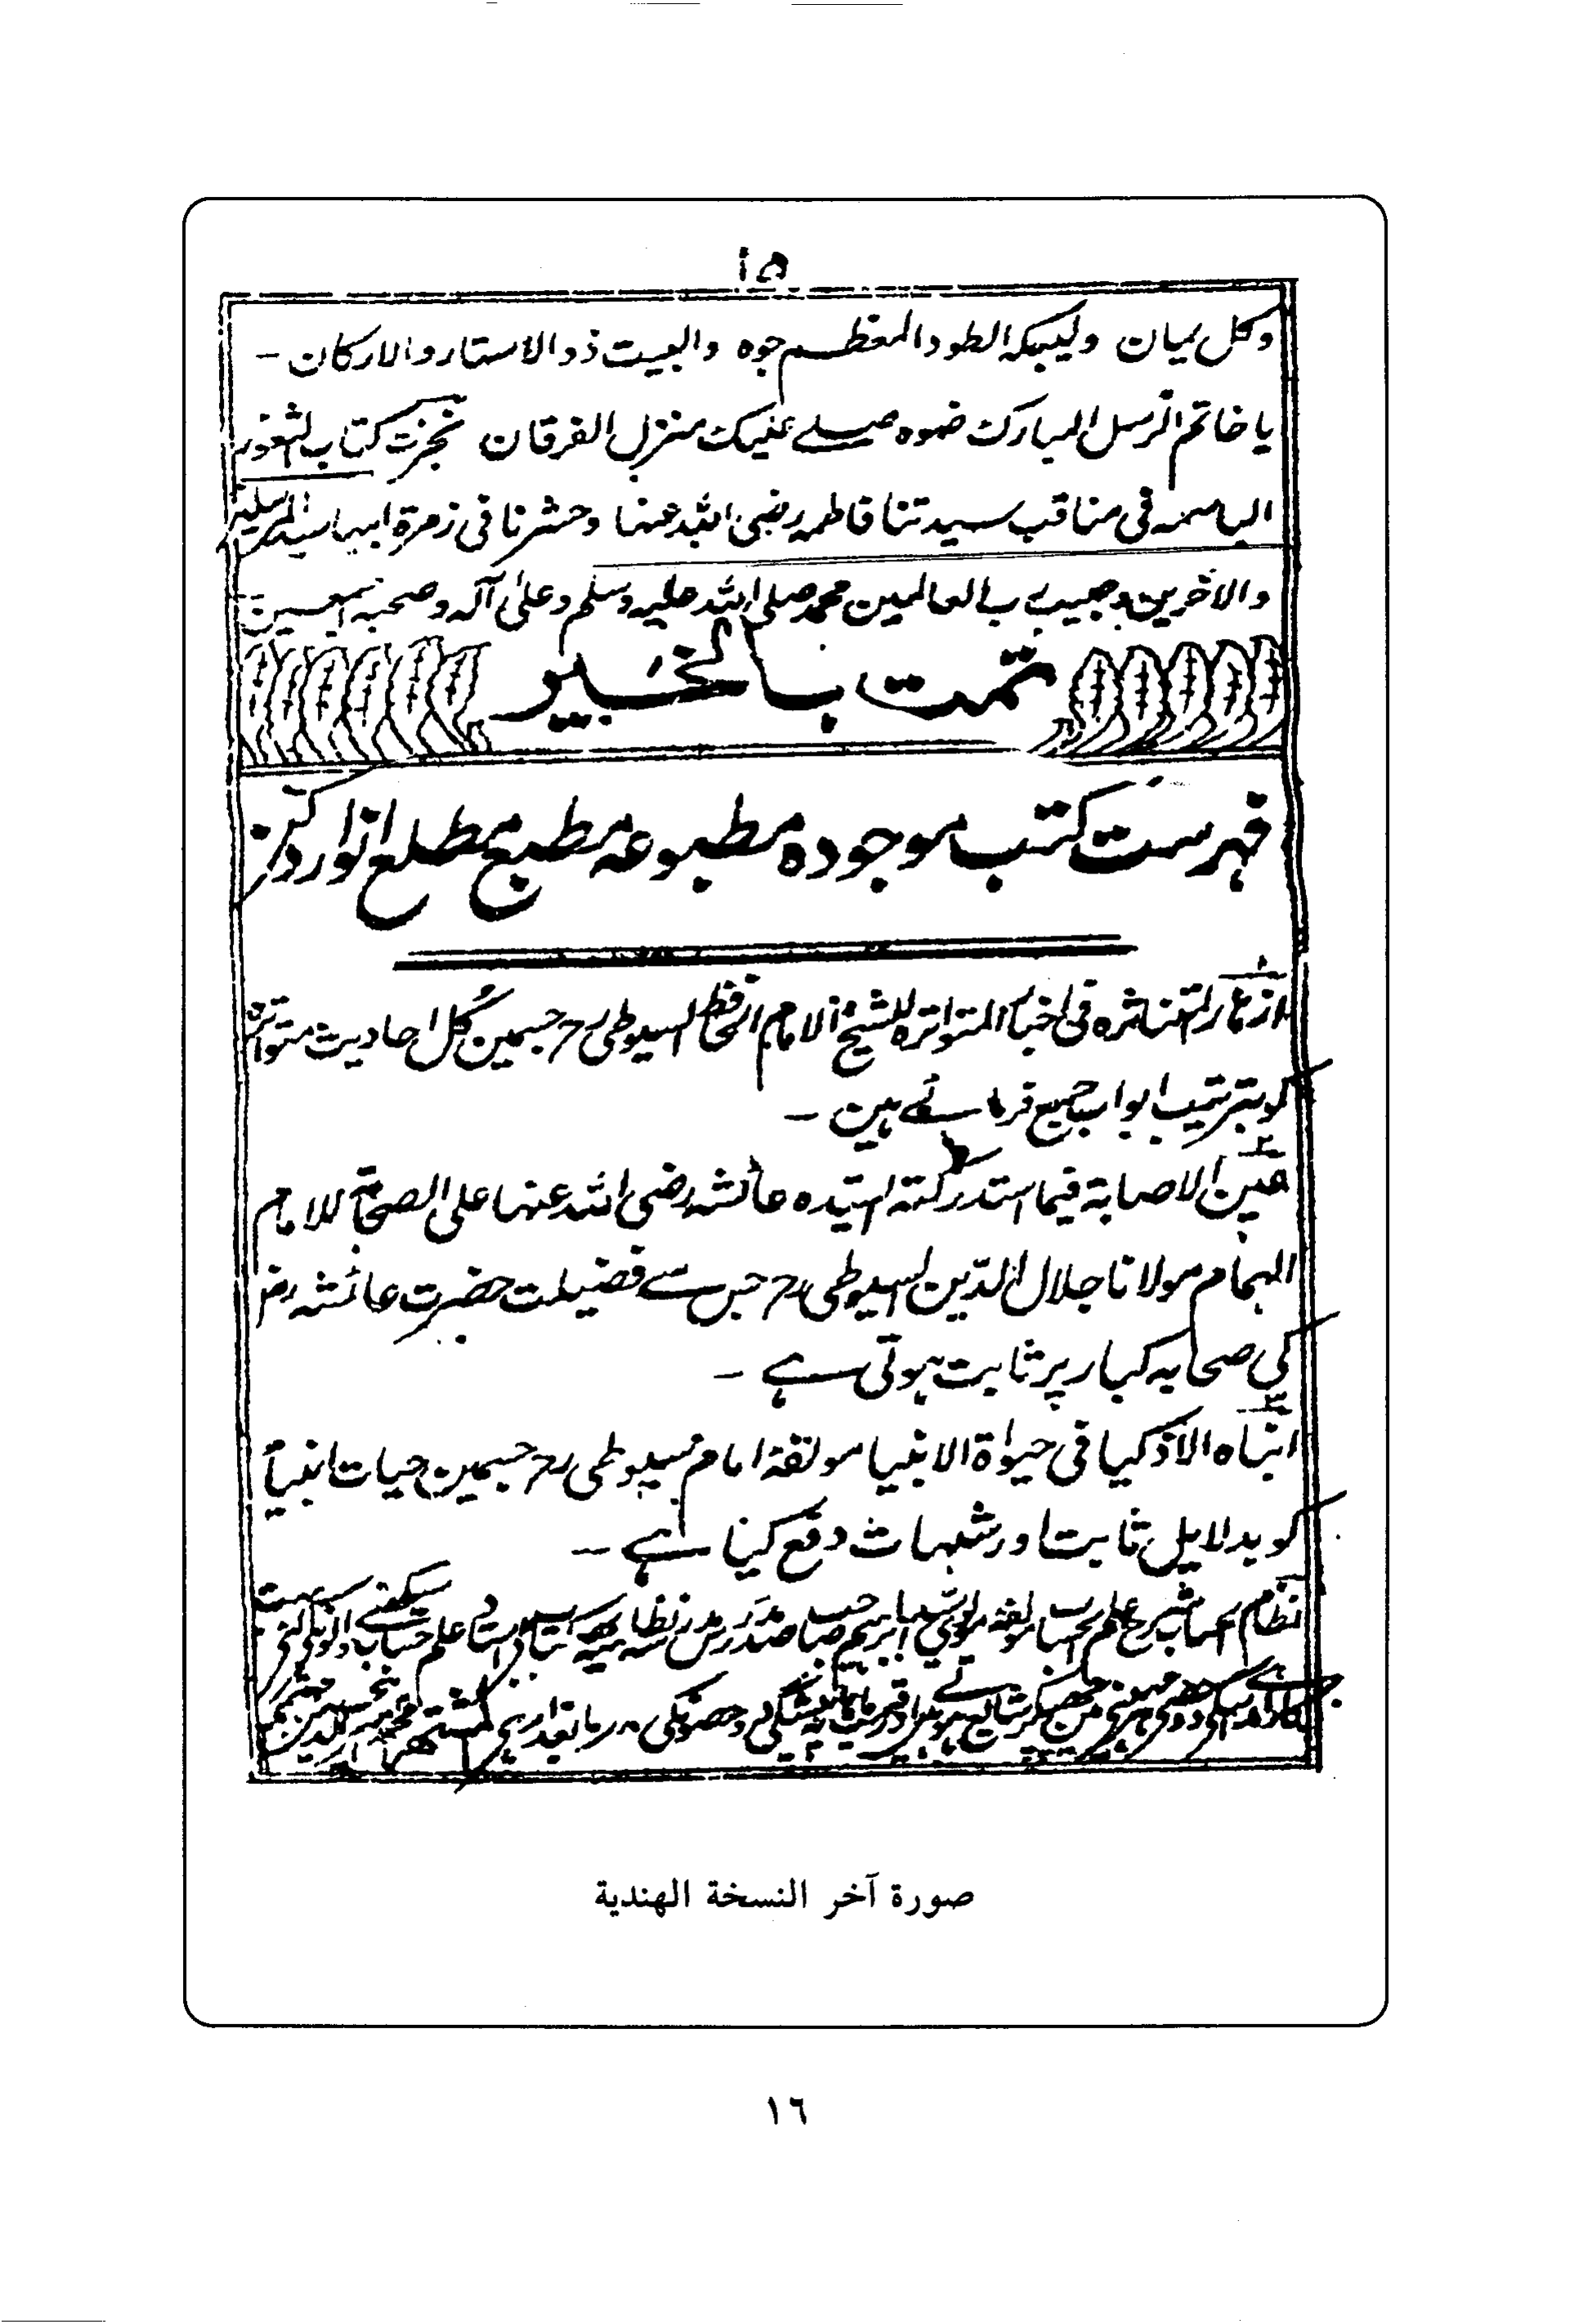 ١٥
وكل يمان وليبكه الطود المعظم جوه والبيت ذو الاستار والاركان -
يا خاتم الرسل المبارك ضوه صلى عليك منزل الفرقان نجزت كتاب الثغور
الباسمه فى مناقب سيدتنا فاطمه رضى الله عنها وحشرنا فى زمرة ابيها سيد المرسلين
والاخرين وحبيب رب العالمين محمد صلى الله عليه وسلم وعلى آله وصحبه اجمعين
تمت بالخير
فہرست کتب موجوده مطبوعہ مطبع مطلع انوار دکن
۱
ازہار المتناثره فی اخبار المتواتره للشيخ الامام الحافظ السیوطی رح جسمین کُل احادیث متواتره
کو بترتیب ابواب جمع فرمائے ہین -
۲
عین الاصابة فیما استدرکته السیّده عائشه رضی الله عنہا علی الصحابة للامام
الہمام مولانا جلال الدّین السیوطی رح جس سے فضیلت حضرت عائشہ رض
کی صحابہ کبار پر ثابت ہوتی ہے -
۳
انباه الاذکیا فی حیٰوة الانبیا مولفۂ امام سیوطی رح جسمین حیات انبیاً
کو بدلایل ثابت اور شبہات دفع کیا ہے -
نظام الحساب شرح علم الحساب مولفہ مولوی ابراہیم صاحب صدر مدرس مدرسہ نظامیہ یہ کتاب علم حساب
صورة آخر النسخة الهندية
١٦